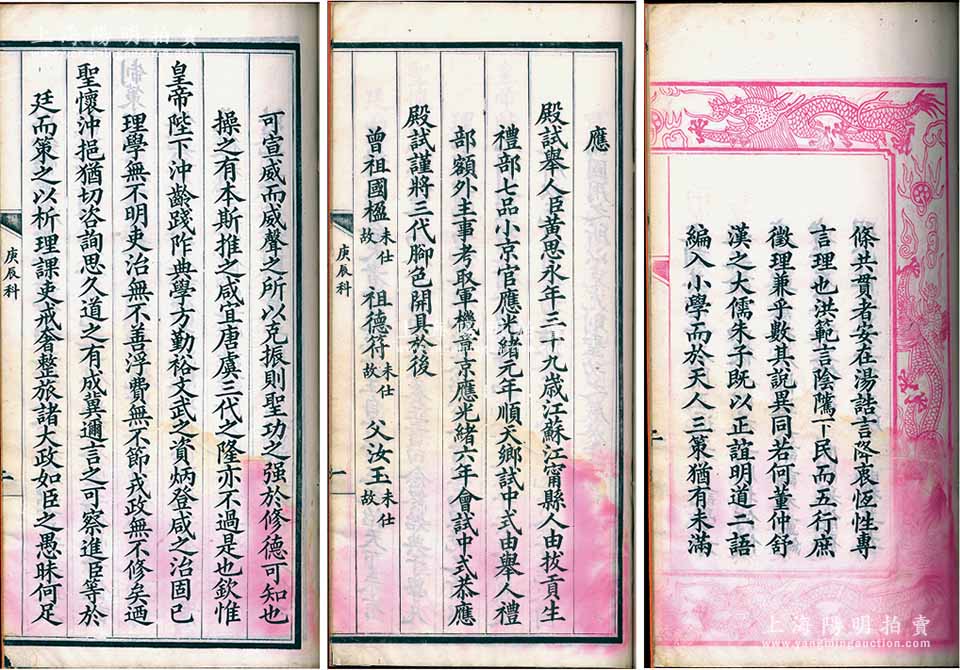 條共貫者安在湯誥言降衷恆性專
言理也洪範言陰隲下民而五行庶
徵理兼乎數其說異同若何董仲舒
漢之大儒朱子既以正誼明道二語
編入小學而於天人三策猶有未滿
應
殿試舉人臣黃思永年三十九歲江蘇江甯縣人由拔貢生
禮部七品小京官應光緒元年順天鄉試中式由舉人禮
部額外主事考取軍機章京應光緒六年會試中式恭應
殿試謹將三代腳色開具於後
曾祖國楹未仕故 祖德符未仕故 父汝玉未仕故
庚辰科
一
可宣威而威聲之所以克振則聖功之强於修德可知也
操之有本斯推之咸宜唐虞三代之隆亦不過是也欽惟
皇帝陛下沖齡踐阼典學方勤裕文武之資炳登咸之治固已
理學無不明吏治無不善浮費無不節戎政無不修矣迺
聖懷沖挹猶切咨詢思久道之有成冀邇言之可察進臣等於
廷而策之以析理課吏戒奢整旅諸大政如臣之愚昧何足
庚辰科
二
上海陽明拍賣
上海陽明拍賣
www.yangmingauction.com